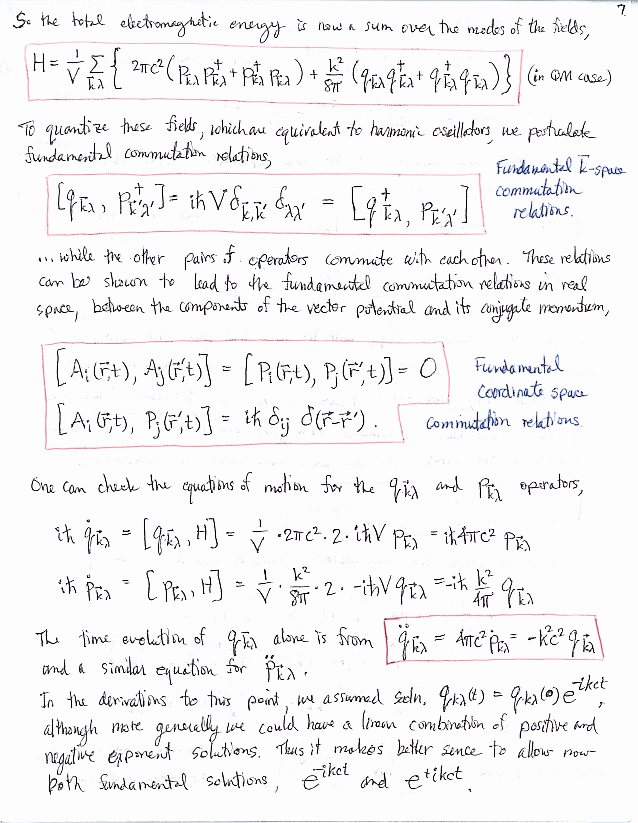 7.
So the total electromagnetic energy is now a sum over the modes of the fields,
H = 1/V Σ_{k̄λ} { 2πc² (P_{k̄λ} P†_{k̄λ} + P†_{k̄λ} P_{k̄λ}) + k²/8π (q_{k̄λ} q†_{k̄λ} + q†_{k̄λ} q_{k̄λ}) } (in QM case)
To quantize these fields, which are equivalent to harmonic oscillators, we postulate
fundamental commutation relations,
Fundamental k̄-space
commutation
relations.
[q_{k̄λ}, P†_{k̄'λ'}] = iħ V δ_{k̄,k̄'} δ_{λλ'} = [q†_{k̄λ}, P_{k̄'λ'}]
... while the other pairs of operators commute with each other. These relations
can be shown to lead to the fundamental commutation relations in real
space, between the components of the vector potential and its conjugate momentum,
[A_i(r̄,t), A_j(r̄',t)] = [P_i(r̄,t), P_j(r̄',t)] = 0
[A_i(r̄,t), P_j(r̄',t)] = iħ δ_ij δ(r̄-r̄').
Fundamental
Coordinate space
commutation relations.
One can check the equations of motion for the q_{k̄λ} and P_{k̄λ} operators,
iħ q̇_{k̄λ} = [q_{k̄λ}, H] = 1/V · 2πc² · 2 · iħV P_{k̄λ} = iħ4πc² P_{k̄λ}
iħ ṗ_{k̄λ} = [P_{k̄λ}, H] = 1/V · k²/8π · 2 · -iħV q_{k̄λ} = -iħ k²/4π q_{k̄λ}
The time evolution of q_{k̄λ} alone is from q̈_{k̄λ} = 4πc² ṗ_{k̄λ} = -k²c² q_{k̄λ}
and a similar equation for p̈_{k̄λ}.
In the derivations to this point, we assumed soln, q_{kλ}(t) = q_{kλ}(0) e^{-ikct},
although more generally we could have a linear combination of positive and
negative exponent solutions. Thus it makes better sence to allow now
both fundamental solutions, e^{-ikct} and e^{+ikct}.